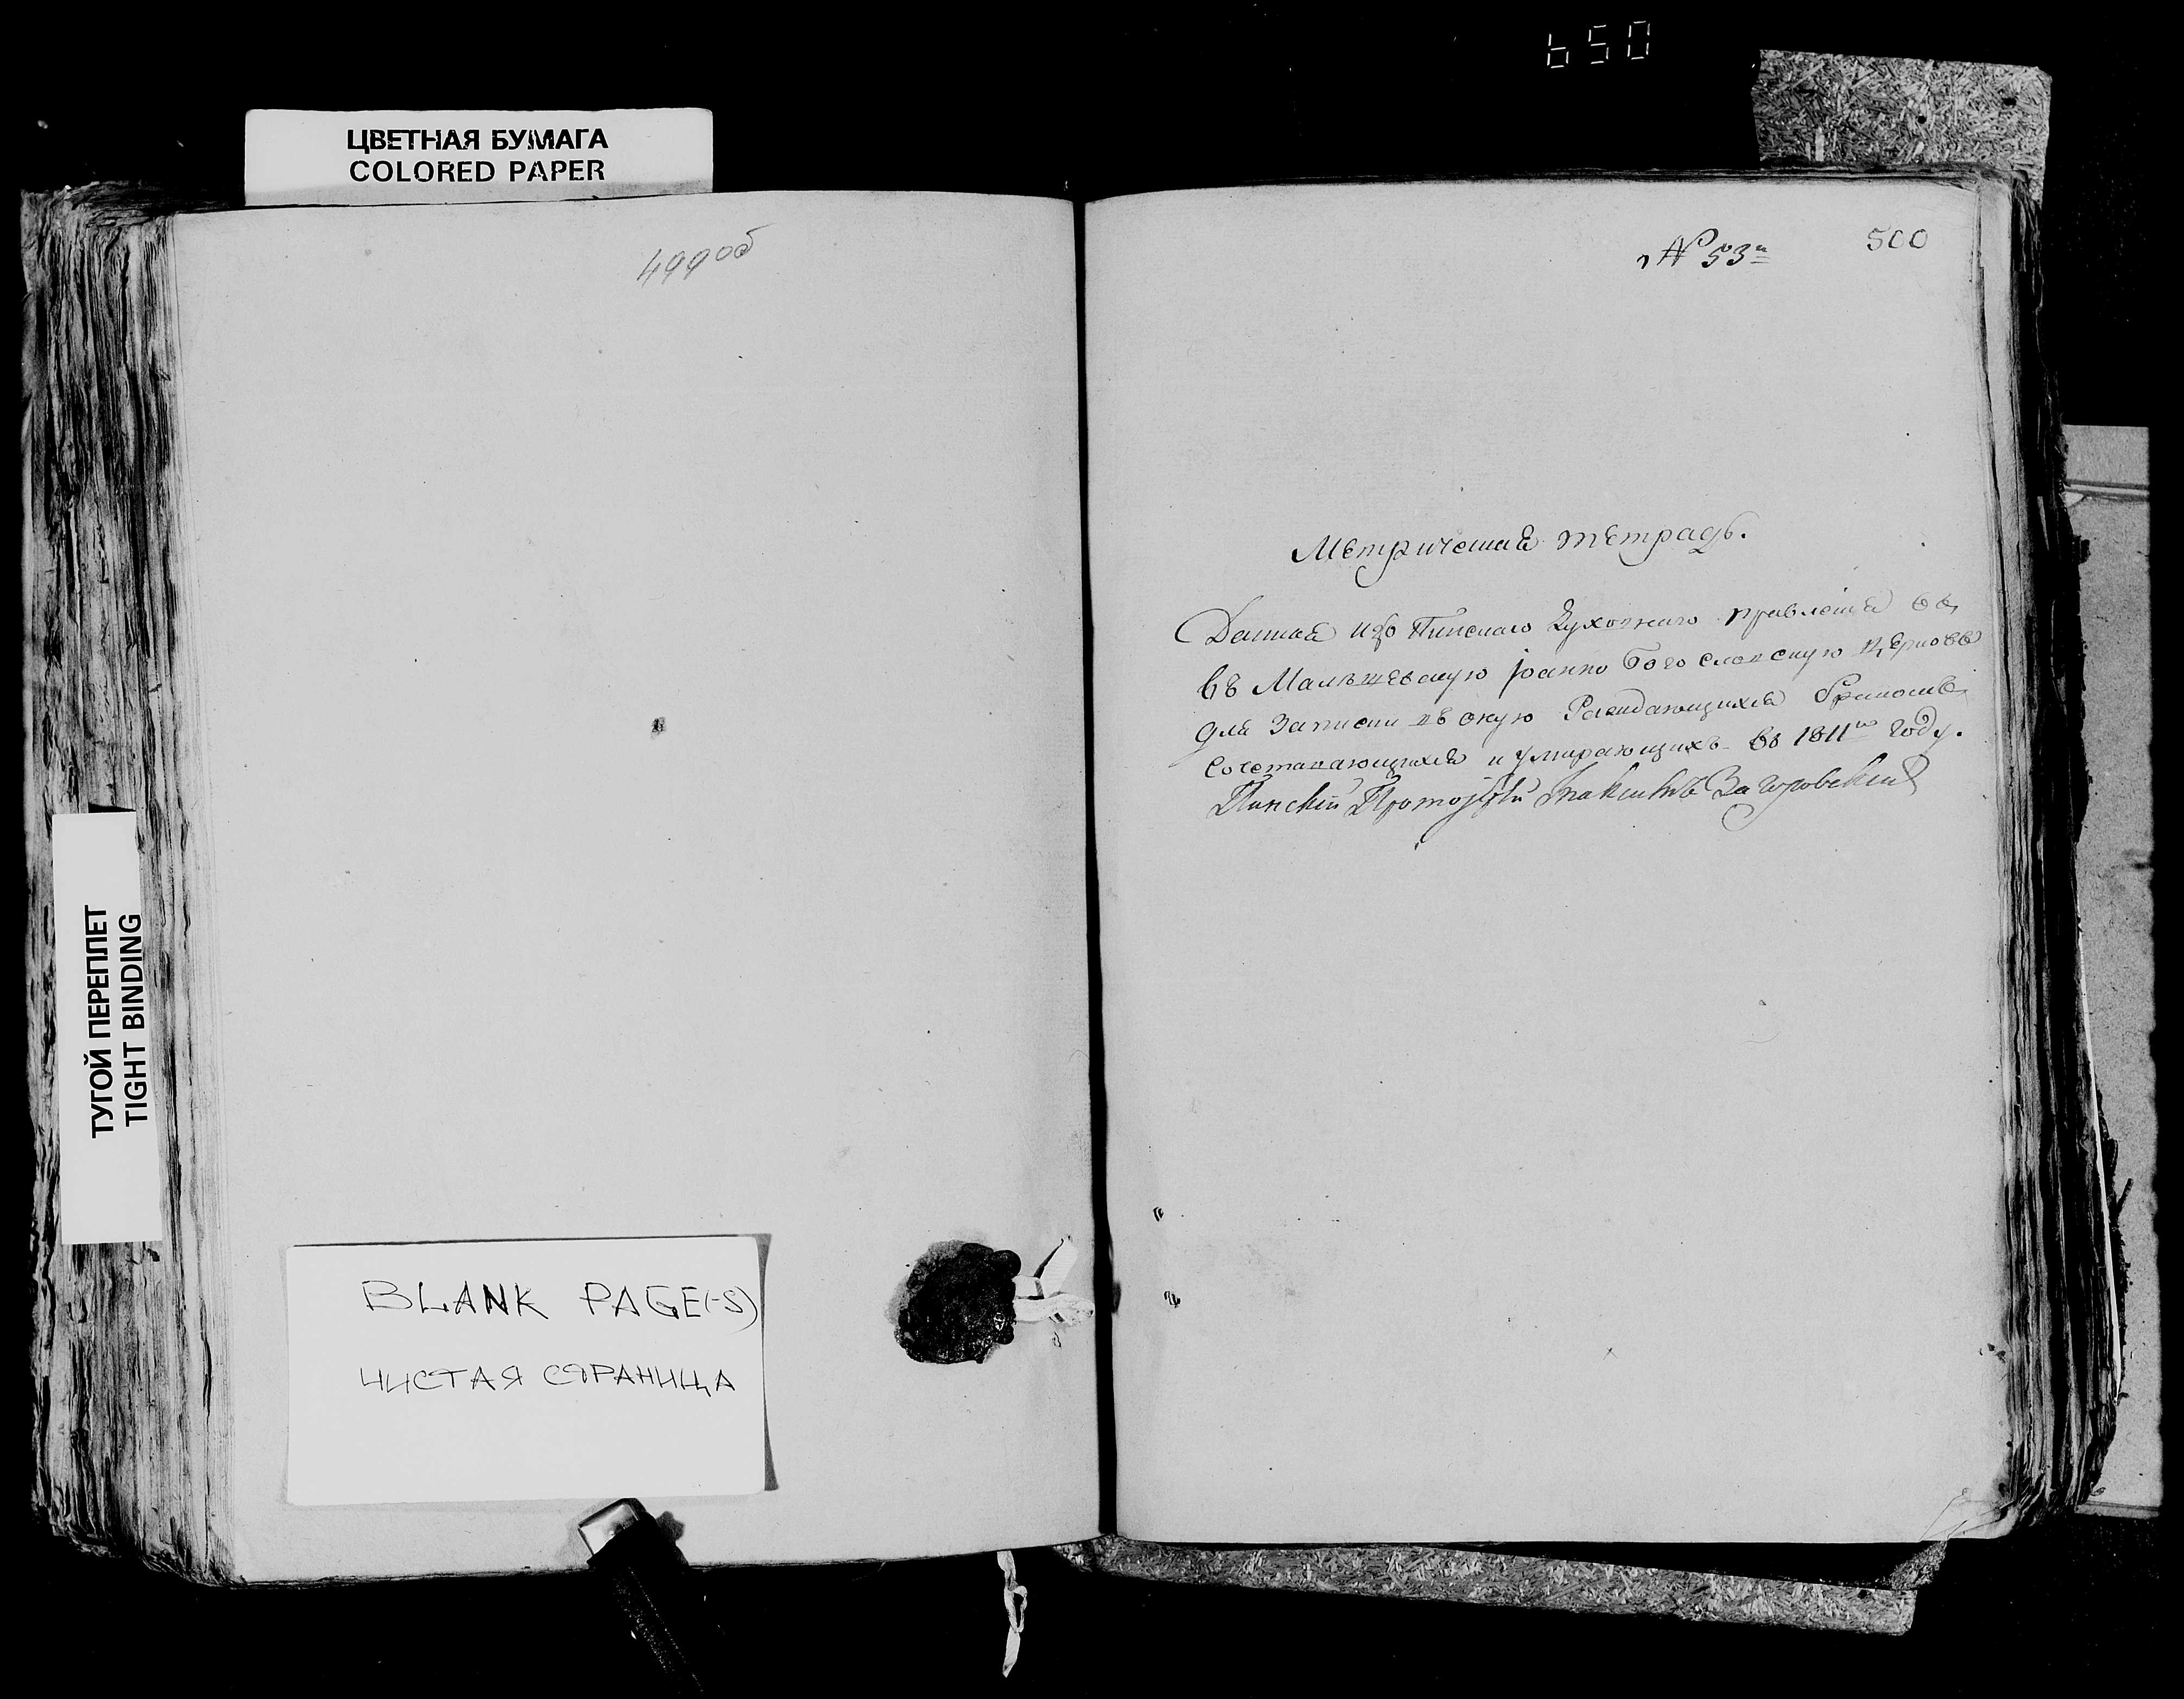 650
ЦВЕТНАЯ БУМАГА
COLORED PAPER
499об
№ 53й
500
Метрическая тетрадь.
Данная изъ Пинскаго Духовнаго правления
въ Малъ Іоанно Богословскую церковь
для Записки въ оную Раждающихся Бракомъ
Сочетавающихся и умирающихъ въ 1811м году.
Пинскій Протоіерей Загоровский
ТУГОЙ ПЕРЕПЛЕТ
TIGHT BINDING
BLANK PAGE(-S)
ЧИСТАЯ СТРАНИЦА